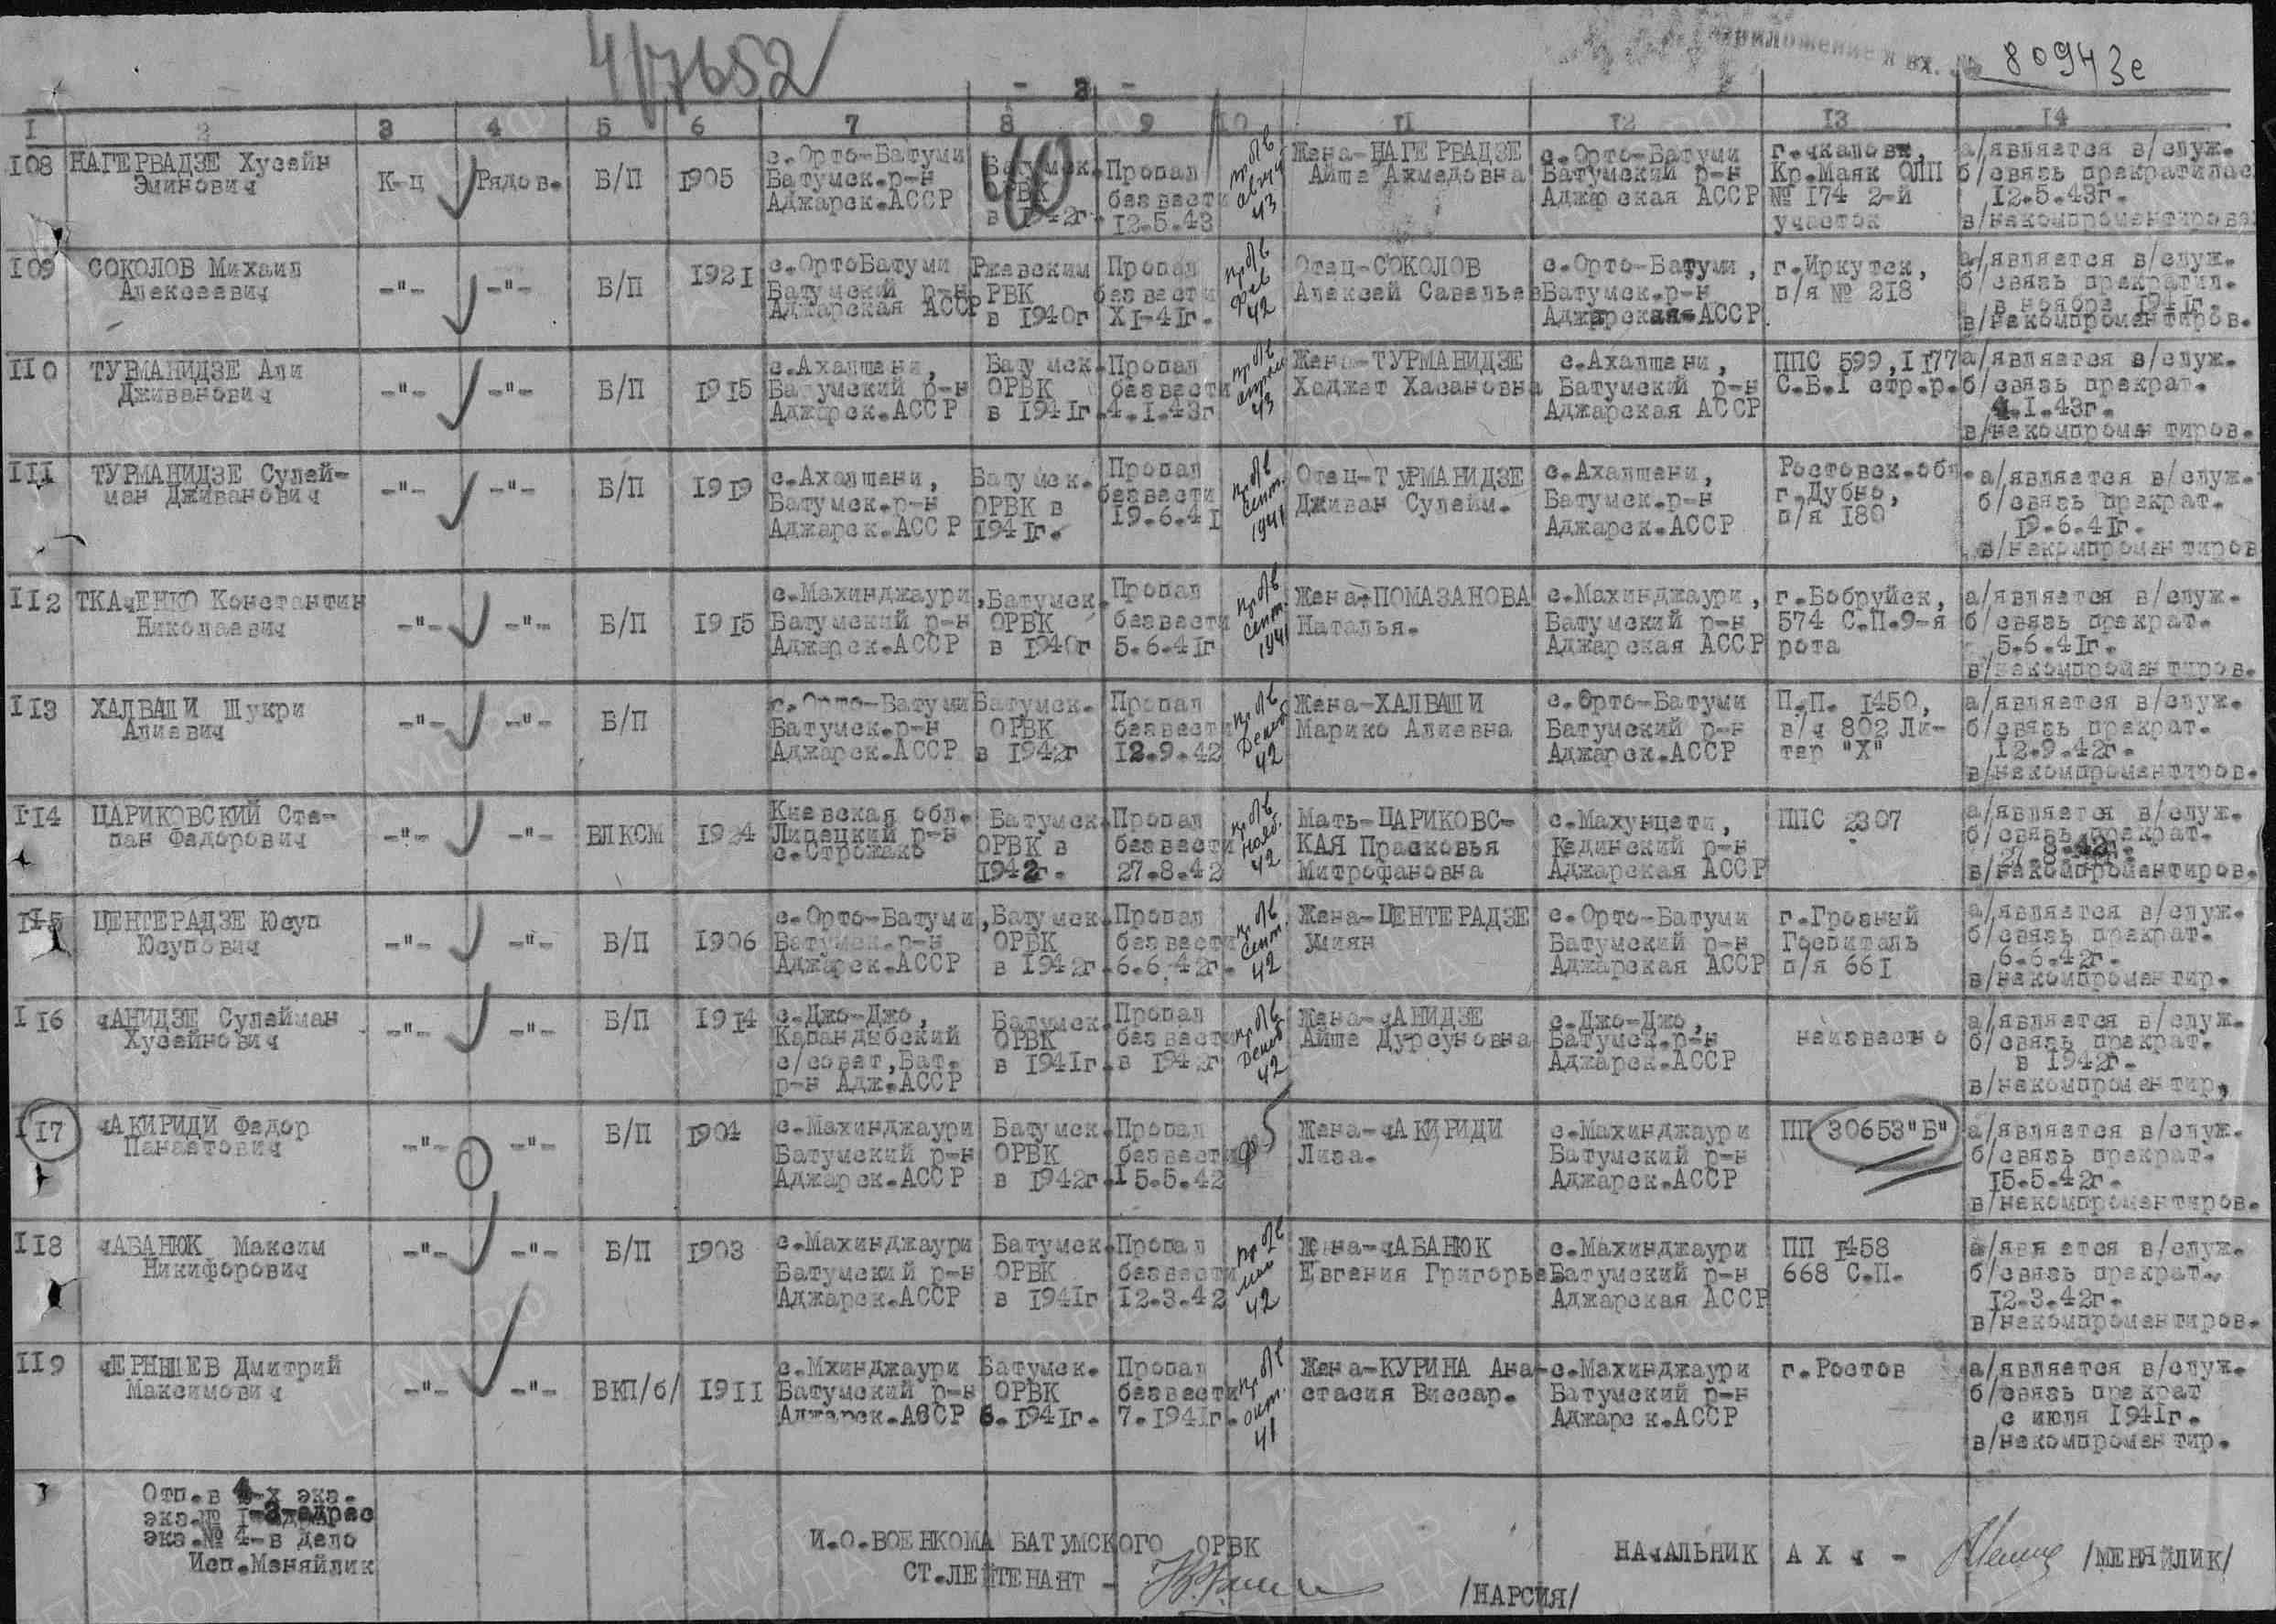 4/7652
Приложение к вх. № 80943с
1 2 3 4 5 6 7 8 9 10 11 12 13 14
108 НАГЕРВАДЗЕ Хусейн Эминович К-ц Рядов. Б/П 1905 с.Орто-Батуми Батумск.р-н Аджарск.АССР Батумск. РВК в 1942г. Пропал без вести 12.5.43 пр.б/в авг 43 Жена-НАГЕРВАДЗЕ Айше Ахмедовна с.Орто-Батуми Батумский р-н Аджарская АССР г.чкалов, Кр.Маяк ОЛП № 174 2-й участок а/является в/служ. б/связь прекратилас 12.5.43г. в/некомпроментирова
109 СОКОЛОВ Михаил Алексеевич -"- -"- Б/П 1921 с.ОртоБатуми Батумский р-н Аджарская АССР Ржевским РВК в 1940г Пропал без вести XI-41г. пр.б/в фев 42 Отец-СОКОЛОВ Алексей Савельев с.Орто-Батуми, Батумск.р-н Аджарская АССР г.Иркутск, п/я № 218 а/является в/служ. б/связь прекратил. в ноябре 1941г. в/некомпроментиров.
110 ТУРМАНИДЗЕ Али Дживанович -"- -"- Б/П 1915 с.Ахалшени, Батумский р-н Аджарск.АССР Батумск. ОРВК в 1941г. Пропал без вести 4.1.43г пр.б/в апрель 43 Жена-ТУРМАНИДЗЕ Хаджет Хасановна с.Ахалшени, Батумский р-н Аджарская АССР ППС 599,1177 С.Б.1 стр.р. а/является в/служ. б/связь прекрат. 4.1.43г. в/некомпроментиров.
111 ТУРМАНИДЗЕ Сулей- ман Дживанович -"- -"- Б/П 1919 с.Ахалшени, Батумск.р-н Аджарск.АССР Батумск. ОРВК в 1941г. Пропал без вести 19.6.41 пр.б/в сент. 1941 Отец-ТУРМАНИДЗЕ Дживан Сулейм. с.Ахалшени, Батумск.р-н Аджарск.АССР Ростовск.обл. г.Дубно, п/я 180 а/является в/служ. б/связь прекрат. 19.6.41г. в/некомпроментиров
112 ТКАчЕНКО Константин Николаевич -"- -"- Б/П 1915 с.Махинджаури, Батумский р-н Аджарск.АССР Батумск. ОРВК в 1940г Пропал без вести 5.6.41г пр.б/в сент. 1941 Жена-ПОМАЗАНОВА Наталья. с.Махинджаури, Батумский р-н Аджарская АССР г.Бобруйск, 574 С.П.9-я рота а/является в/служ. б/связь прекрат. 5.6.41г. в/некомпроментиров.
113 ХАЛВАШИ Шукри Алиевич -"- -"- Б/П с.Орто-Батуми Батумск.р-н Аджарск.АССР Батумск. ОРВК в 1942г Пропал без вести 12.9.42 пр.б/в Декаб 42 Жена-ХАЛВАШИ Марико Алиевна с.Орто-Батуми Батумский р-н Аджарск.АССР П.П. 1450, в/ч 802 Ли- тер "Х" а/является в/служ. б/связь прекрат. 12.9.42г. в/некомпроментиров.
114 ЦАРИКОВСКИЙ Сте- пан Федорович -"- -"- ВЛКСМ 1924 Киевская обл. Липецкий р-н с.Строжако Батумск. ОРВК в 1942г. Пропал без вести 27.8.42 пр.б/в нояб. 42 Мать-ЦАРИКОВС- КАЯ Прасковья Митрофановна с.Махунцети, Кединский р-н Аджарская АССР ППС 2307 а/является в/служ. б/связь прекрат. 27.8.42г. в/некомпроментиров.
115 ЦЕНТЕРАДЗЕ Юсуп Юсупович -"- -"- Б/П 1906 с.Орто-Батуми, Батумск.р-н Аджарск.АССР Батумск. ОРВК в 1942г. Пропал без вести 6.6.42г. пр.б/в сент 42 Жена-ЦЕНТЕРАДЗЕ Умиян с.Орто-Батуми Батумский р-н Аджарская АССР г.Грозный Госпиталь п/я 661 а/является в/служ. б/связь прекрат. 6.6.42г. в/некомпроментир.
116 чАНИДЗЕ Сулейман Хусейнович -"- -"- Б/П 1914 с.Джо-Джо, Капандыбский с/совет,Бат. р-н Адж.АССР Батумск. ОРВК в 1941г. Пропал без вести в 1942г пр.б/в Декаб 42 Жена-чАНИДЗЕ Айше Дурсуновна с.Джо-Джо, Батумск.р-н Аджарск.АССР неизвестно а/является в/служ. б/связь прекрат. в 1942г. в/некомпроментир,
117 чАКИРИДИ Федор Панаетович -"- -"- Б/П 1904 с.Махинджаури Батумский р-н Аджарск.АССР Батумск. ОРВК в 1942г. Пропал без вести 15.5.42 Жена-чАКИРИДИ Лиза. с.Махинджаури Батумский р-н Аджарск.АССР ПП 30653"Б" а/является в/служ. б/связь прекрат. 15.5.42г. в/некомпроментиров.
118 чАБАНЮК Максим Никифорович -"- -"- Б/П 1903 с.Махинджаури Батумский р-н Аджарск.АССР Батумск. ОРВК в 1941г Пропал без вести 12.3.42 пр.б/в 42 Жена-чАБАНЮК Евгения Григорье с.Махинджаури Батумский р-н Аджарская АССР ПП 1458 668 С.П. а/явяется в/служ. б/связь прекрат. 12.3.42г. в/некомпроментиров.
119 чЕРНЫШЕВ Дмитрий Максимович -"- -"- ВКП/б/ 1911 с.Мхинджаури Батумский р-н Аджарск.АССР Батумск. ОРВК 6.1941г. Пропал без вести 7.1941г. пр.б/в окт. 41 Жена-КУРИНА Ана- стасия Виссар. с.Махинджаури Батумский р-н Аджарск.АССР г.Ростов а/является в/служ. б/связь прекрат с июля 1941г. в/некомпроментир.
Отп.в 4-х экз.
экз.№ 1-3-адрес
экз.№ 4-в дело
Исп.Меняйлик
И.О.ВОЕНКОМА БАТУМСКОГО ОРВК
СТ.ЛЕЙТЕНАНТ - /НАРСИЯ/
НАчАЛЬНИК А Х ч - /МЕНЯЙЛИК/